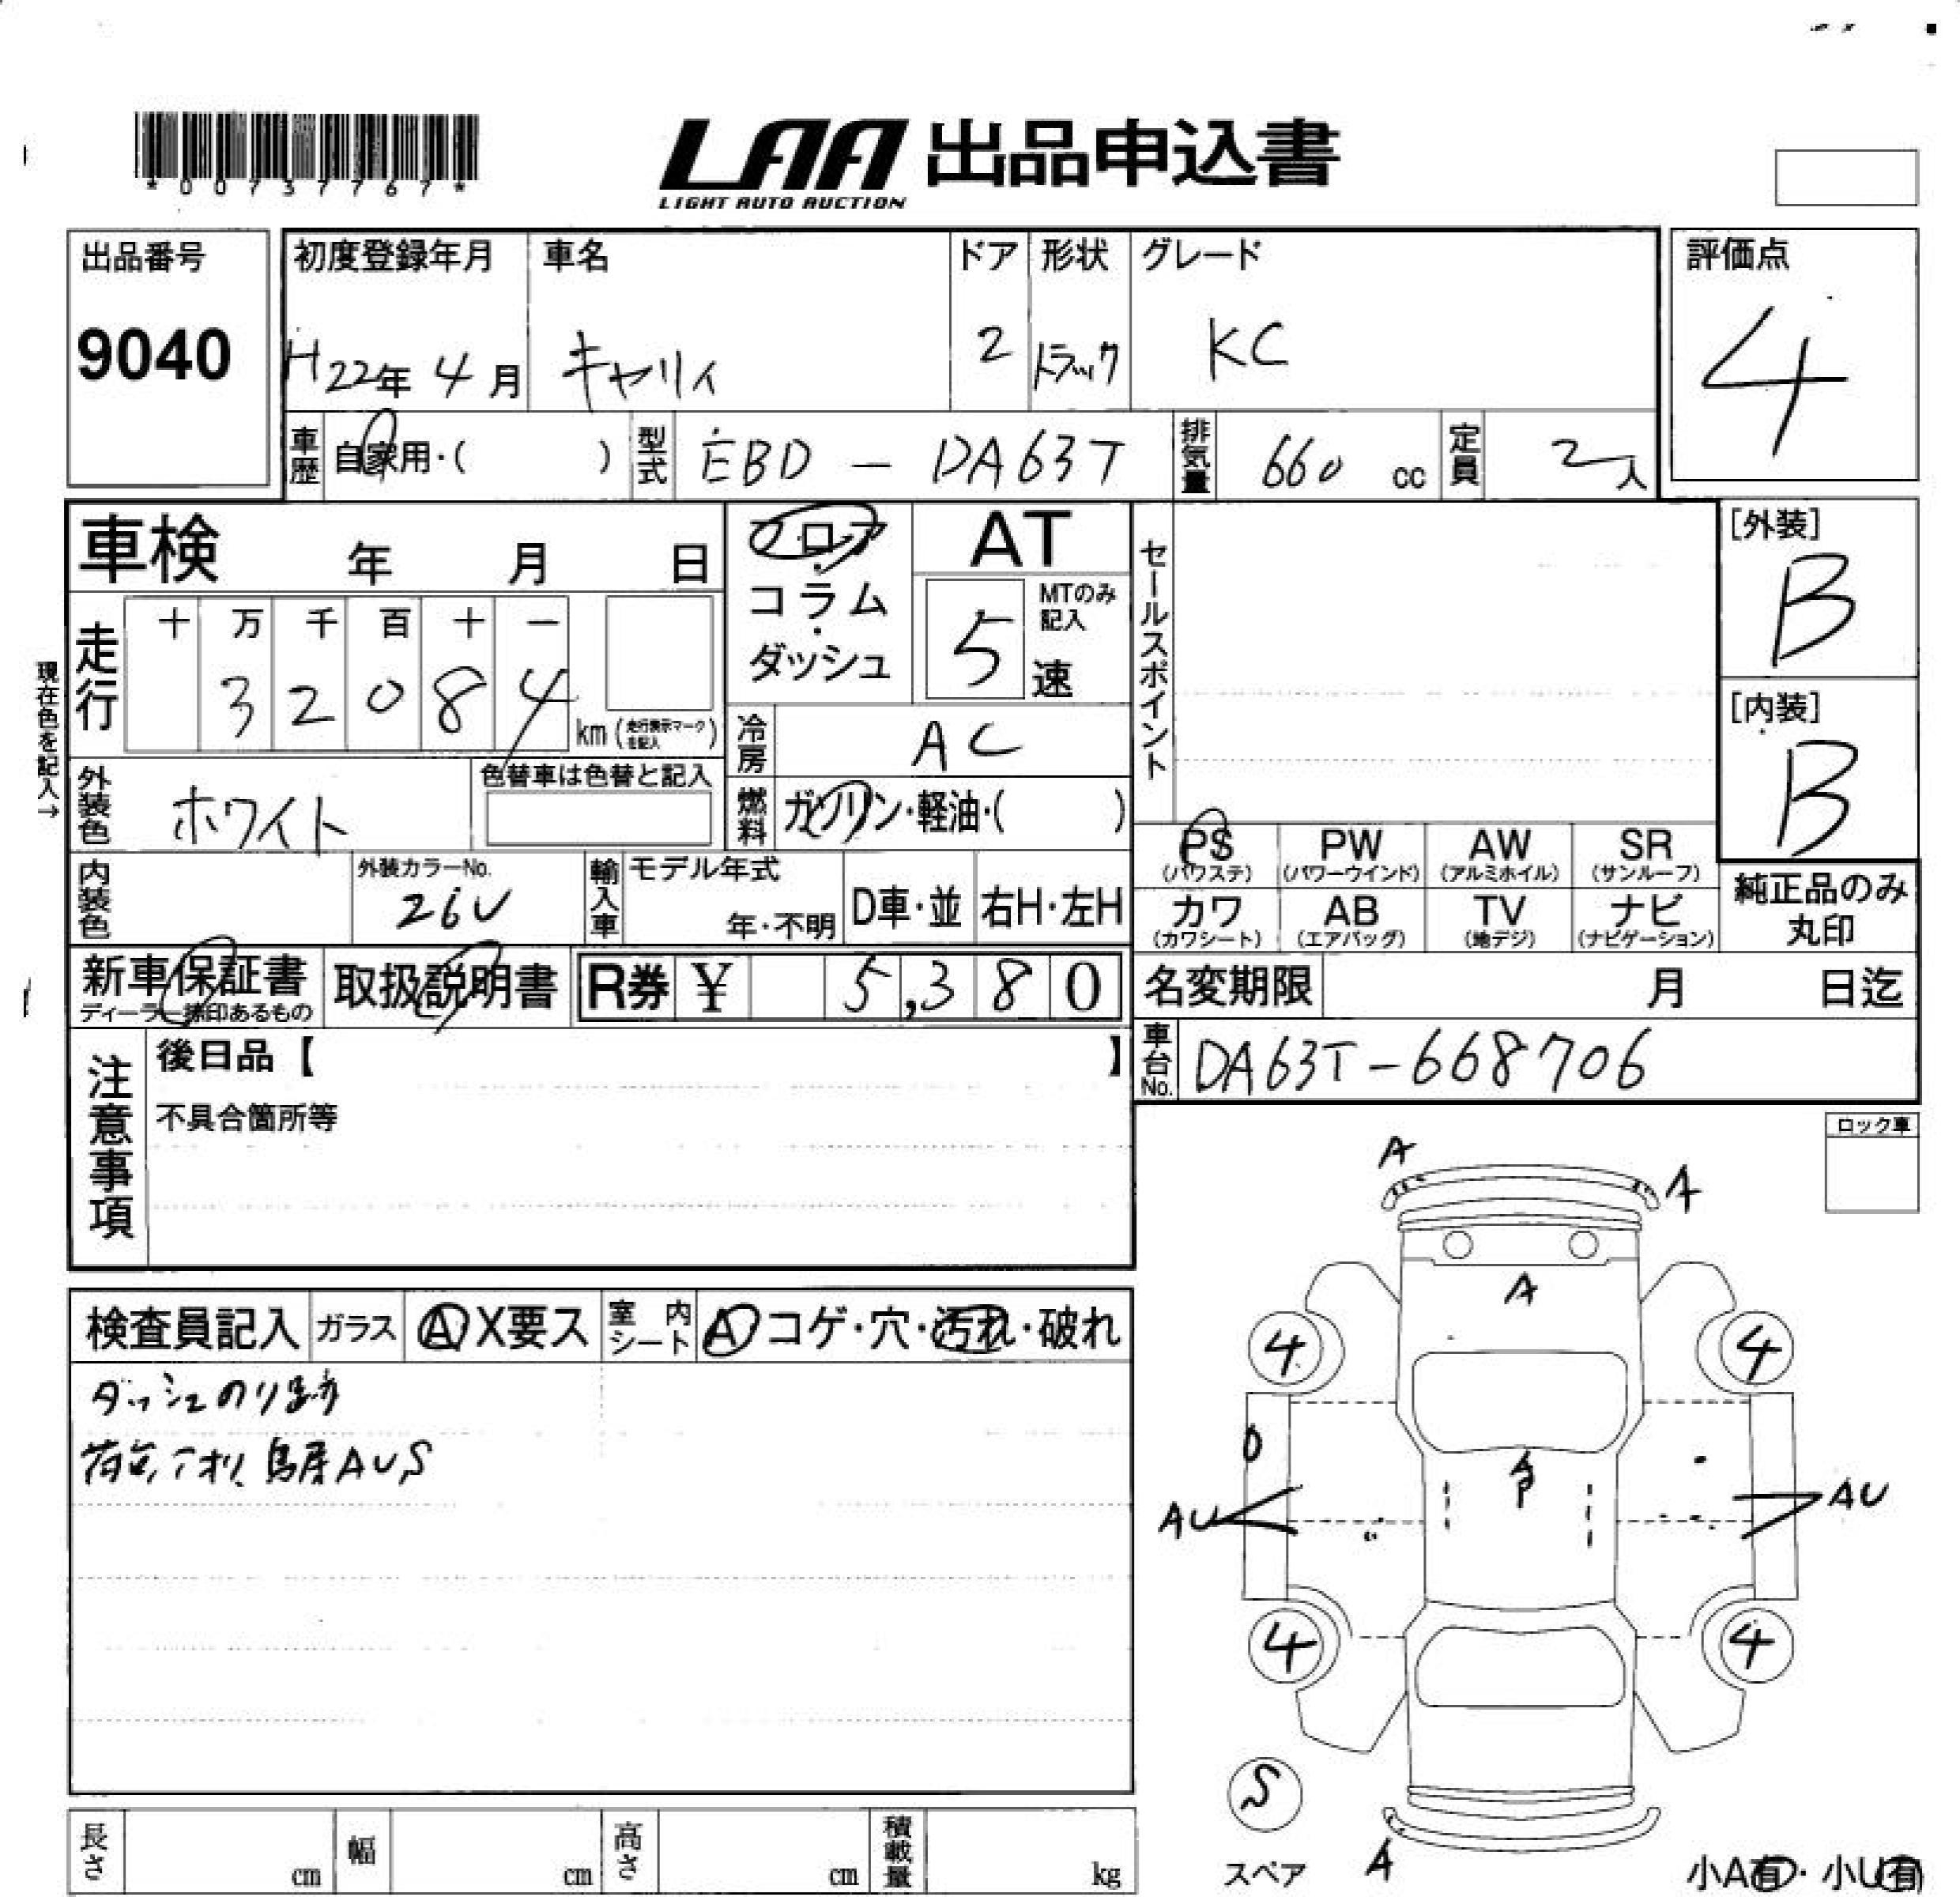 *00737767*
LAA 出品申込書
LIGHT AUTO AUCTION
出品番号
9040
初度登録年月 車名 ドア 形状 グレード 評価点
H22年 4月 キャリィ 2 トラック KC 4
車歴 自家用・( ) 型式 EBD - DA63T 排気量 660 cc 定員 2人
車検 年 月 日
フロア・コラム・ダッシュ
AT
5速 MTのみ記入
セールスポイント
[外装]
B
[内装]
B
現在色を記入→
走行 十 万 千 百 十 一
3 2 0 8 4 km (走行表示マークを記入)
冷房 AC
外装色 ホワイト 色替車は色替と記入
燃料 ガソリン・軽油・( )
内装色 外装カラーNo. 26U 輸入車 モデル年式 年・不明 D車・並 右H・左H
PS (パワステ) PW (パワーウインド) AW (アルミホイル) SR (サンルーフ)
カワ (カワシート) AB (エアバッグ) TV (地デジ) ナビ (ナビゲーション)
純正品のみ丸印
新車保証書 ディーラー捺印あるもの 取扱説明書 R券 ¥ 5,380
名変期限 月 日迄
車台No. DA63T-668706
注意事項
後日品【 】
不具合箇所等
ロック車
検査員記入 ガラス A X要ス 室内シート A コゲ・穴・汚れ・破れ
ダッシュのり跡
荷台、アオリ、鳥居AUS
A
A
A
4 4
A
AU AU
4 4
S
スペア
A
小A有・小U有
長さ cm 幅 cm 高さ cm 積載量 kg